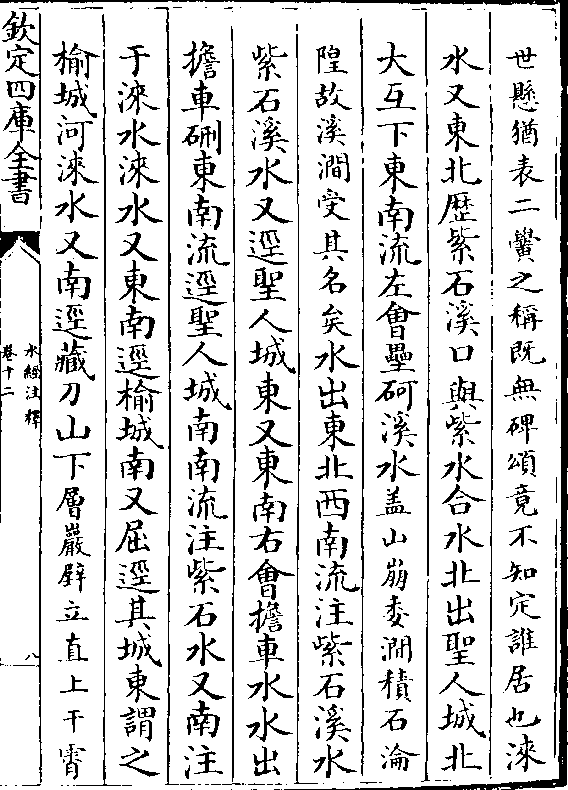 世懸猶表二黌之稱既無碑頌竟不知定誰居也淶
水又東北歷紫石溪口與紫水合水北出聖人城北
大互下東南流左會壘砢溪水蓋山崩委澗積石淪
隍故溪澗受其名矣水出東北西南流注紫石溪水
紫石溪水又逕聖人城東又東南右會擔車水水出
擔車硎東南流逕聖人城南南流注紫石水又南注
于淶水淶水又東南逕榆城南又屈逕其城東謂之
榆城河淶水又南逕藏刀山下層巖壁立直上干霄
欽定四庫全書
水經注釋
卷十二
八